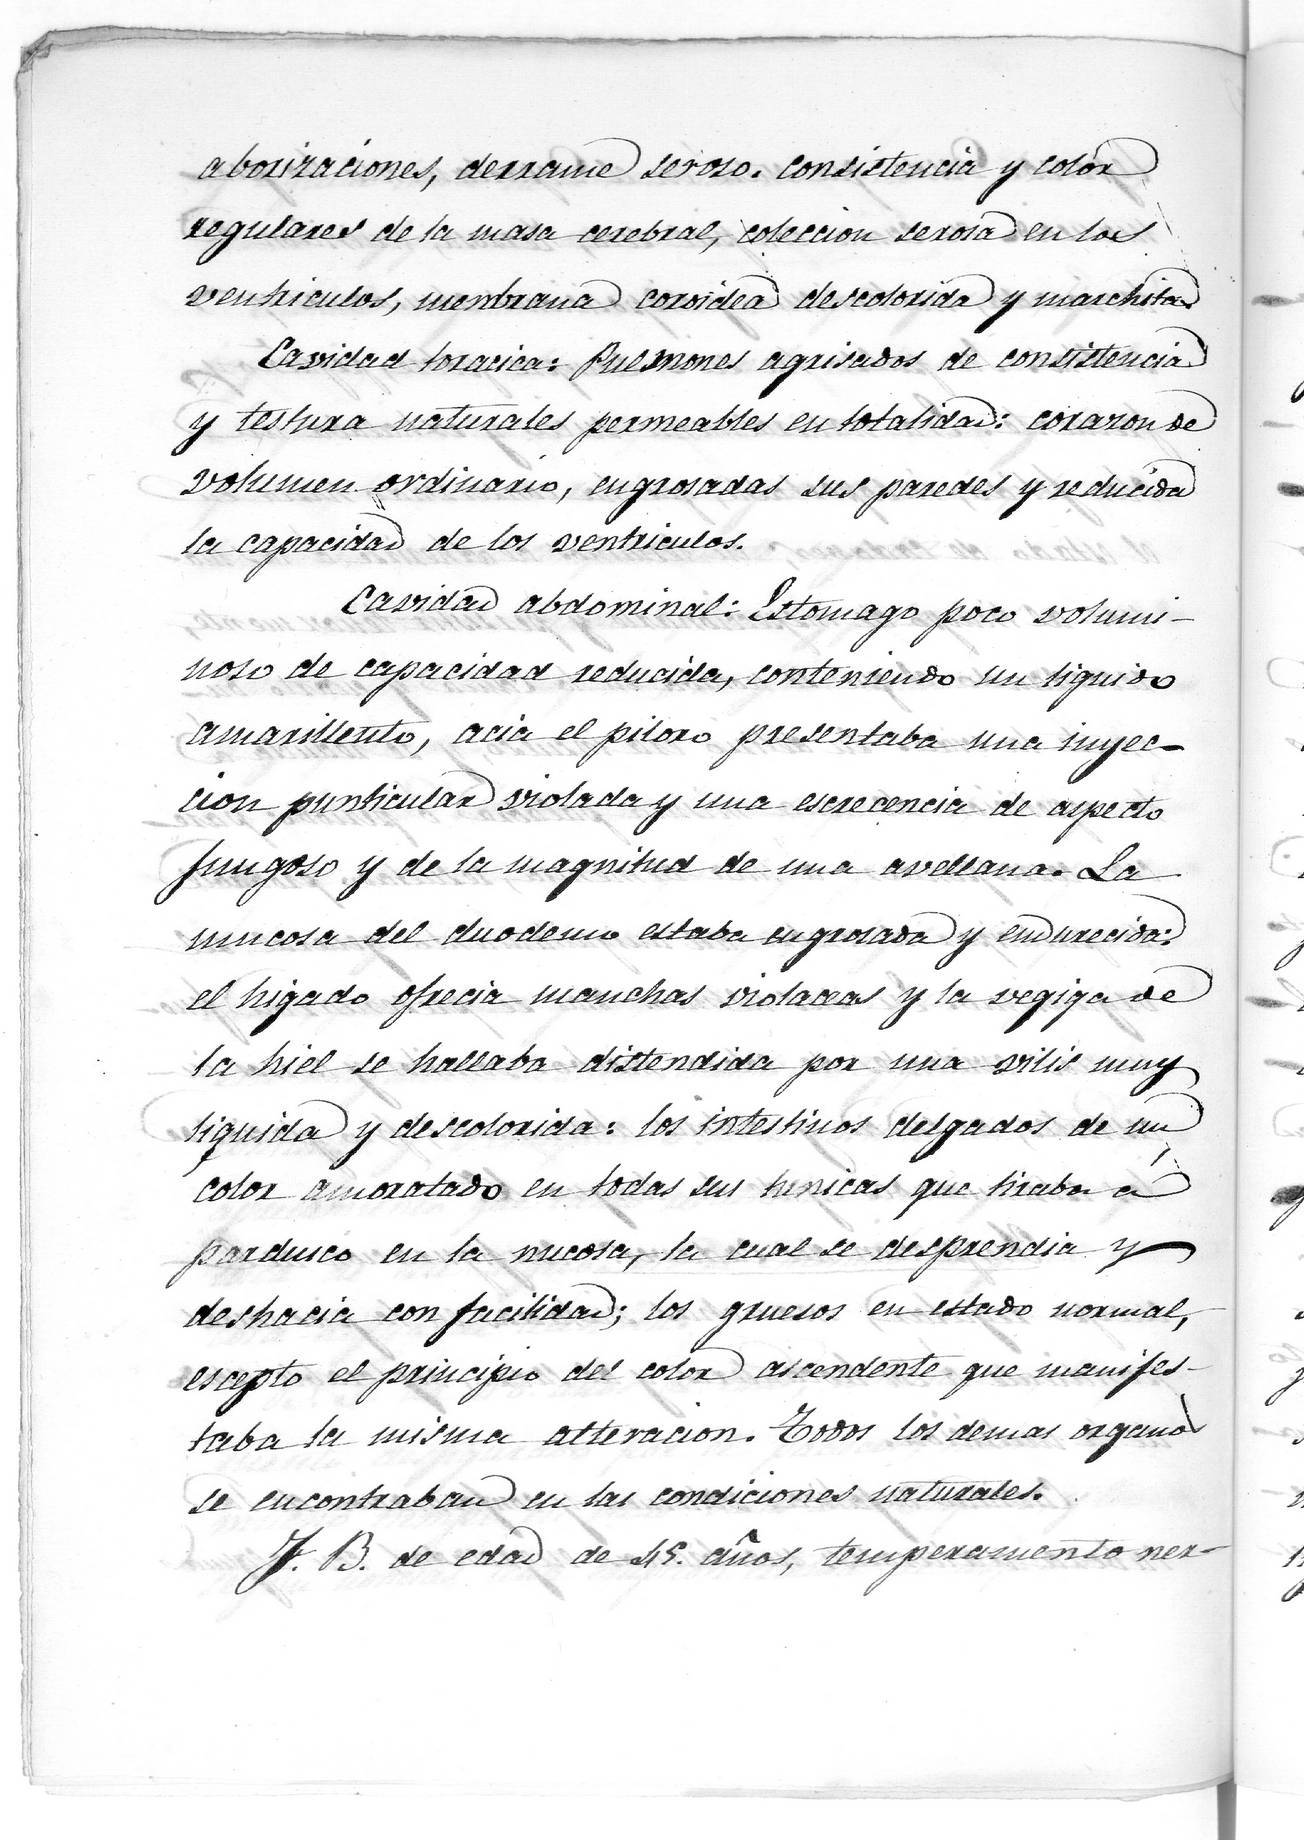 aborizaciones, derrame seroso. consistencia y color
regulares de la masa cerebral, coleccion serosa en los
venhiculos, menbrana coroidea descolorida y marchita.
Cavidad toracica: Pulmones agrisados de consistencia
y testura naturales permeables en totalidad: corazon de
volumen ordinario, engrosadas sus paredes y reducida
la capacidad de los ventriculos.
Cavidad abdominal: Estomago poco volumi-
noso de capacidad reducida, conteniendo un liquido
amarillento, acia el piloro presentaba una inyec-
cion punticular violada y una escrecencia de aspecto
fungoso y de la magnitud de una avellana. La
mucosa del duodeno estaba engrosada y endurecida:
el higado ofrecia manchas violaceas y la vegiga de
la hiel se hallaba distendida por una vilis muy
liquida y descolorida: los intestinos delgados de un
color amoratado en todas sus tunicas que tiraba á
pardusco en la mucosa, la cual se desprendia y
deshacia con facilidad; los gruesos en estado normal,
escepto el principio del color ascendente que manifes-
taba la misma alteracion. Todos los demas organos
se encontraban en las condiciones naturales.
J. B. de edad de 45. años, temperamento ner-